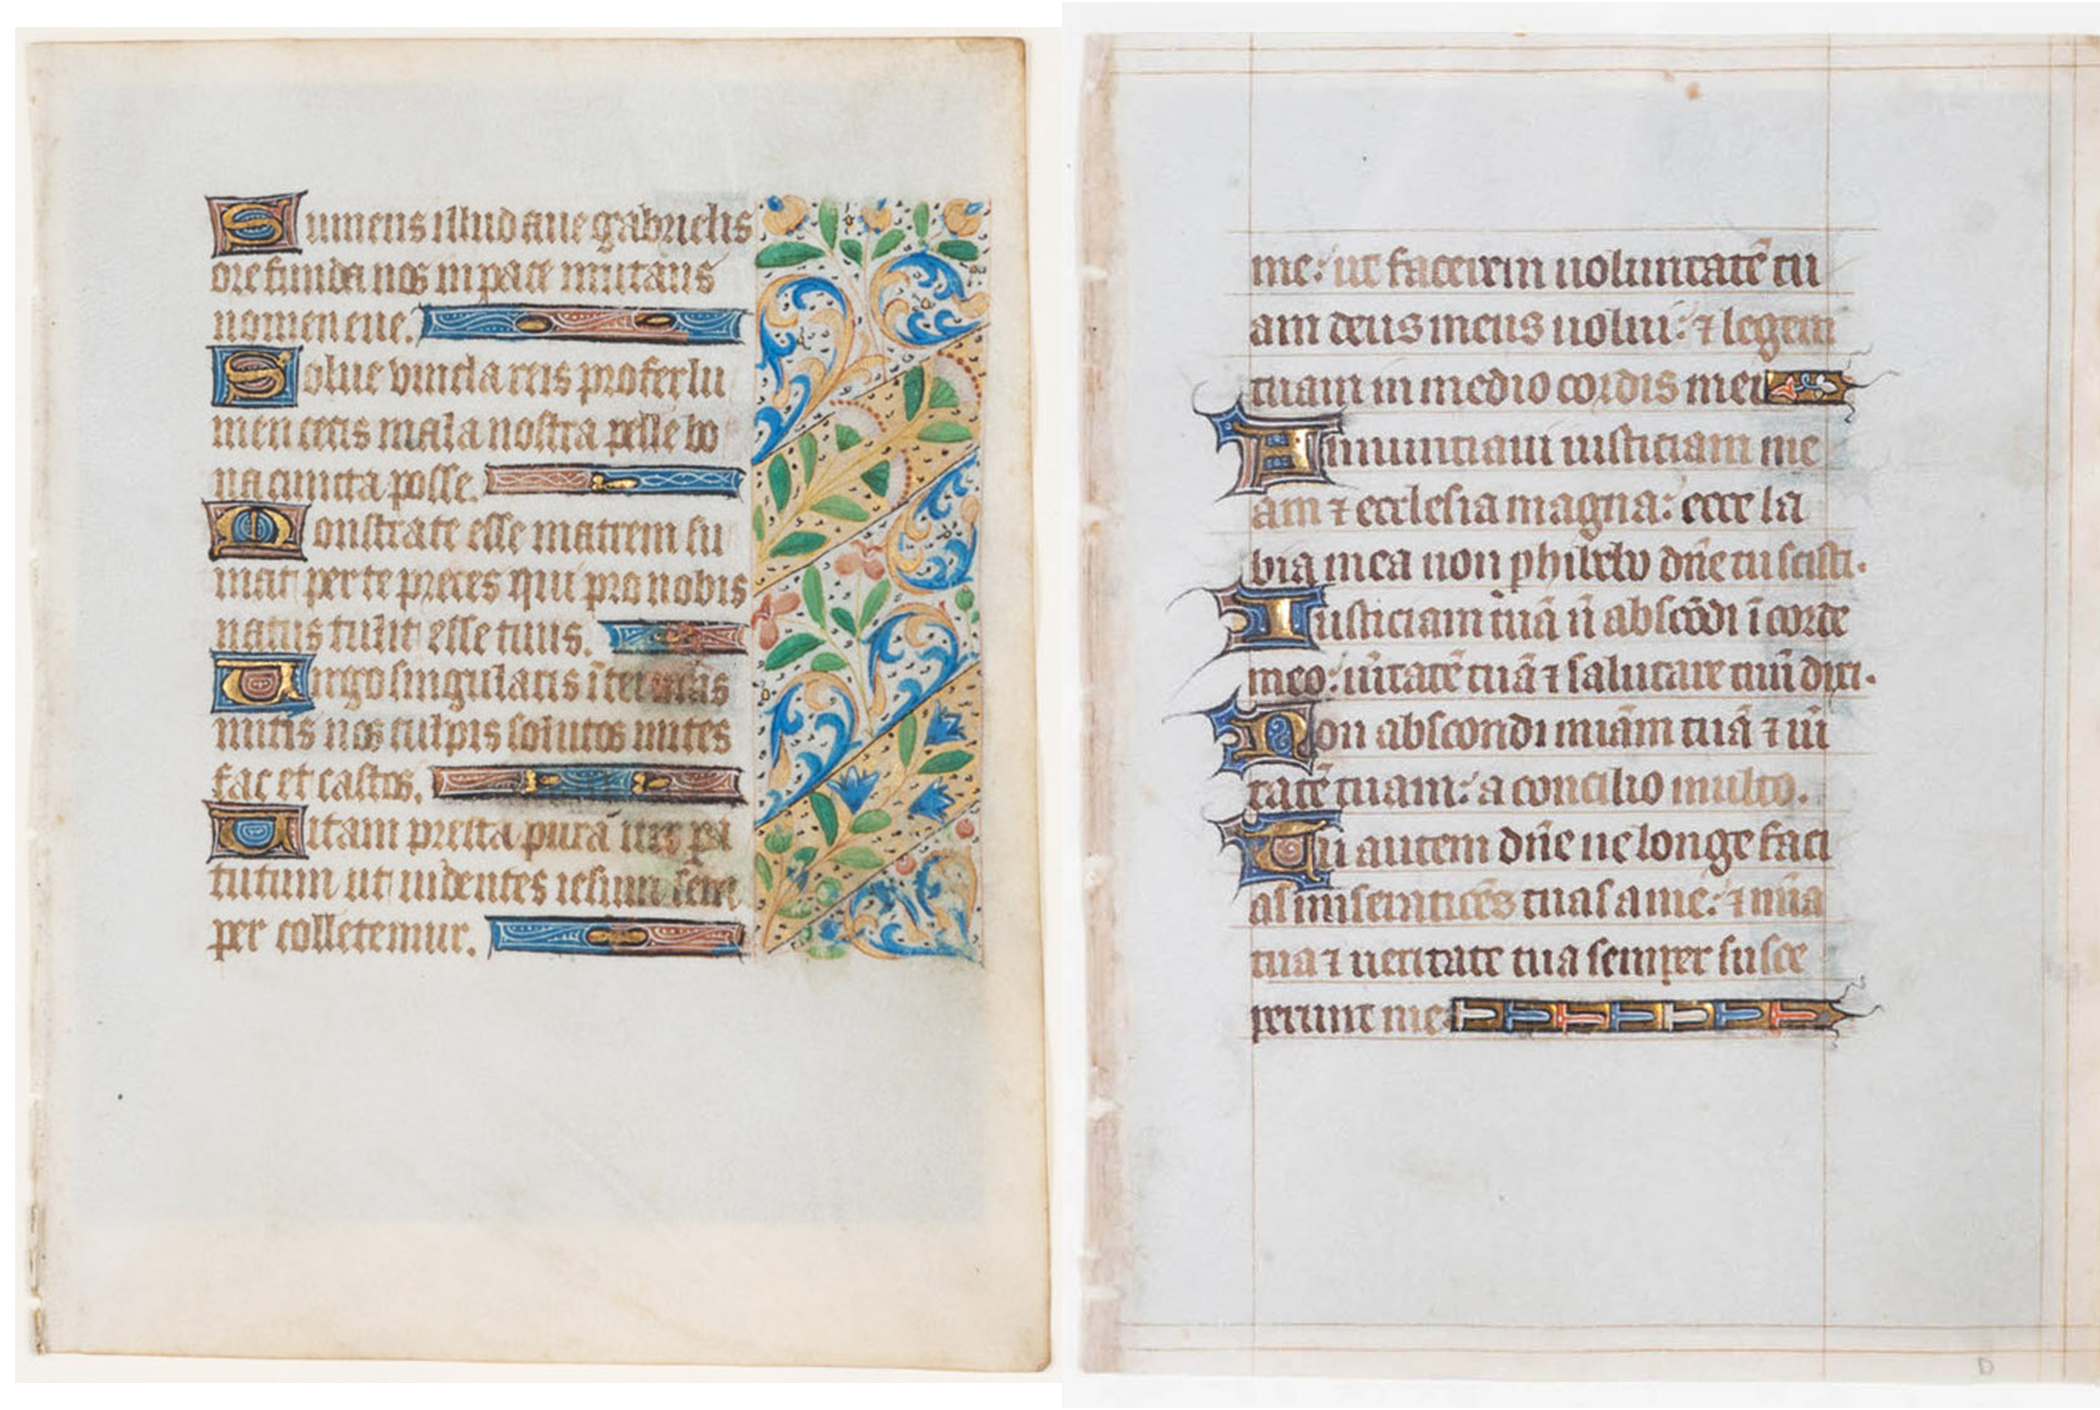 Sumens illud aue gabrielis
ore funda nos in pace mutans
nomen eue.
Solue vincla reis profer lu
men cecis mala nostra pelle bo
na cuncta posse.
Monstrate esse matrem su
mat per te preces qui pro nobis
natus tulit esse tuus.
Uirgo singularis īter
mitis nos culpis solutos mites
fac et castos.
Uitam presta purā iter pa
tutum ut uidentes iesum sem
per colletemur.
me: ut facerem uoluntatē tu
am deus meus uolui: ⁊ legem
tuam in medio cordis mei
Annuntiaui iusticiam me
am ⁊ ecclesia magna: ecce la
bia mea non phibebo dn̄e tu scisti.
Iusticiam tuā n̄ abscōdi ī corde
meo: ūitatē tuā ⁊ salutare tuū dixi.
Non abscondi miām tuā ⁊ ūi
tatē tuam: a concilio multo.
Tu autem dn̄e ne longe faci
as miseratiōes tuas a me: ⁊ mīa
tua ⁊ ueritate tua semper susce
perunt me
D